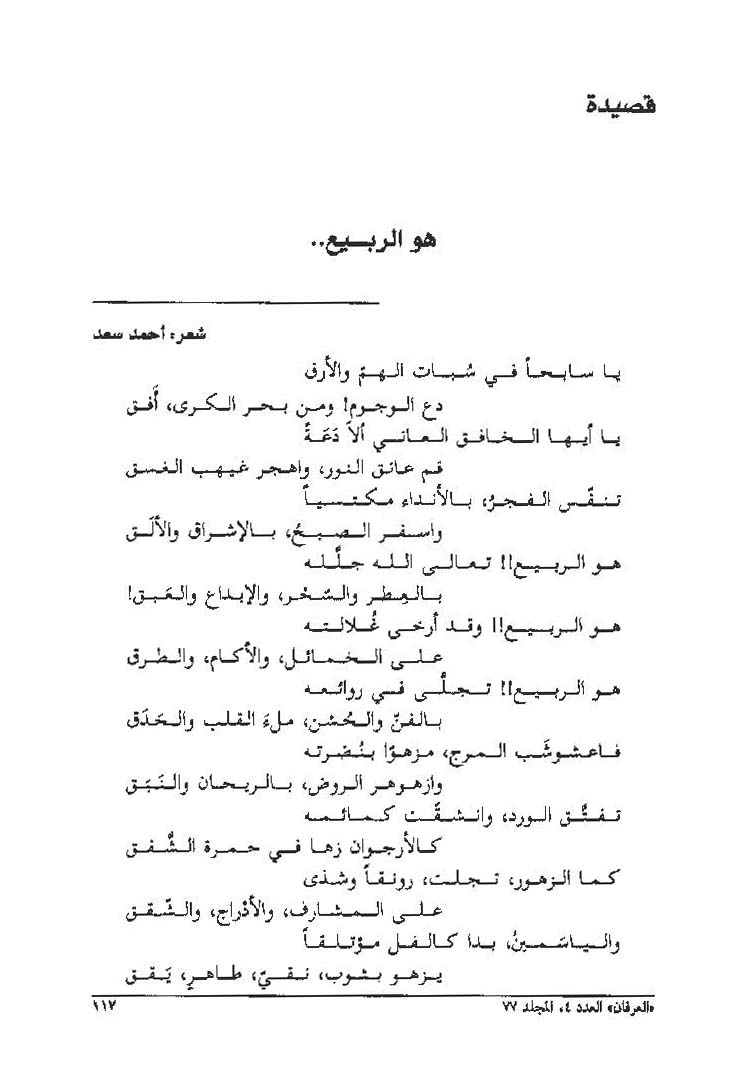 قصيدة
هو الربـيع..
شعر: أحمد سعد
يا سابحاً في سُبات الهمّ والأرق
دع الوجوم! ومن بحر الكرى، أَفق
يا أيها الخافق العاني ألاَ دَعَةً
قم عانق النور، واهجر غيهب الغسق
تنفّس الفجرُ، بالأنداء مكتسياً
واسفر الصبحُ، بالإشراق والألَق
هو الربيع!! تعالى الله جلَّله
بالعِطر والسّحْر، والإبداع والعَبق!
هو الربيع!! وقد أرخى غُلالته
على الخمائل، والأكام، والطرق
هو الربيع!! تجلّى في روائعه
بالفنّ والحُسْن، ملءَ القلب والحَدَق
فاعشوشَب المرج، مزهوّا بنُضرته
وازهوهر الروض، بالريحان والنَبَق
تفتَّق الورد، وانشقَّت كمائمه
كالأرجوان زها في حمرة الشَّفق
كما الزهور، تجلت، رونقاً وشذى
على المشارف، والأدْراج، والشّقق
والياسَمينُ، بدا كالفل مؤتلقاً
يزهو بثوب، نقيّ، طاهرٍ، يَقق
«العرفان» العدد ٤، المجلد ٧٧
١١٧